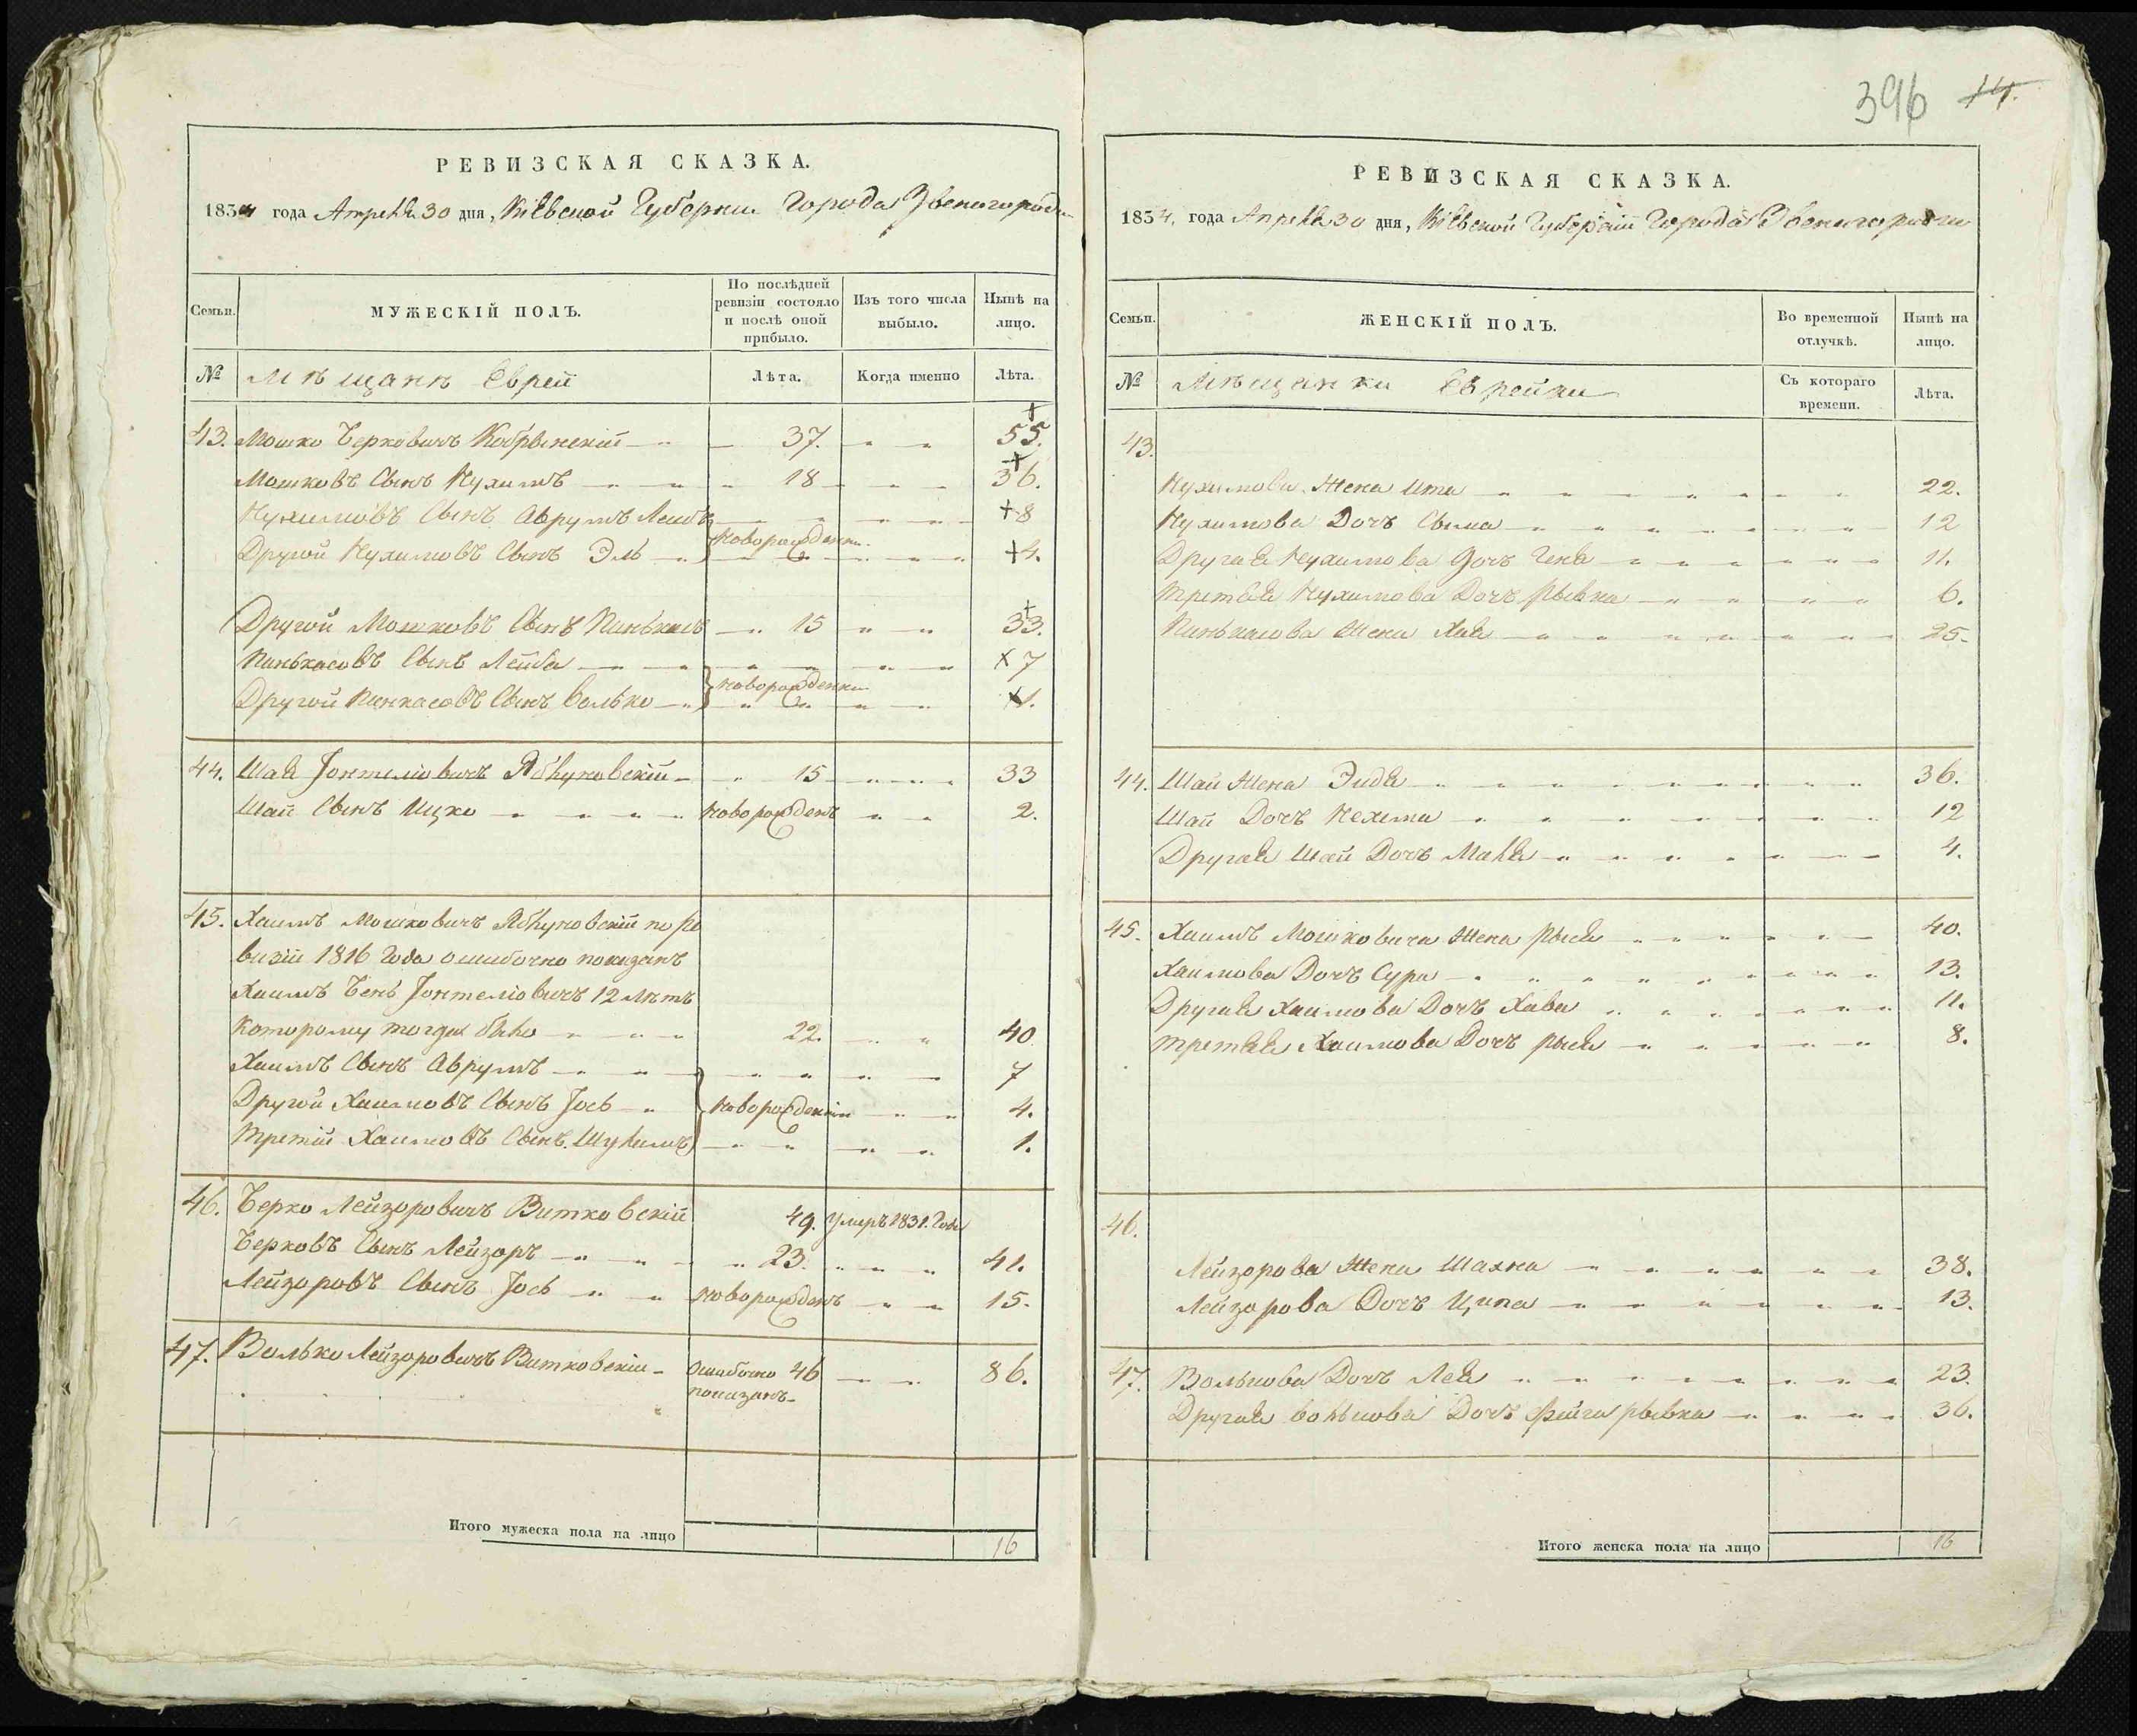 РЕВИЗСКАЯ СКАЗКА.
1834 года Апреля 30 дня, Кіевской Губерніи Города Звенигородки
Семьи.
МУЖЕСКІЙ ПОЛЪ.
По послѣдней ревизіи состояло и послѣ оной прибыло.
Изъ того числа выбыло.
Нынѣ на лицо.
№ Мѣщанѣ Еврей
Лѣта. Когда именно Лѣта.
43. Мошко Берковичъ Кобрынскій 37. 55.
Мошковъ Сынъ Нухимъ 18 36.
Нухимовъ Сынъ Аврумъ Лейбъ 8
новорожденны
Другой Нухимовъ Сынъ Эль 4.
Другой Мошковъ Сынъ Пинькасъ 15 33.
Пинькасовъ Сынъ Лейба 7
новорожденны
Другой Пинкасовъ Сынъ Волько 1.
44. Шая Іонтелiовичъ Яблуновскій 15 33
Шаи Сынъ Ицко новорожденъ 2.
45. Хаимъ Мошковичъ Яблуновскій по ре
визіи 1816 Года ошибочно показанъ
Хаимъ Бенъ Іонтелiовичъ 12 лѣтъ
Которому тогда было 22. 40
Хаимъ Сынъ Аврумъ 7
Другой Хаимовъ Сынъ Іось новорожденны 4.
Третій Хаимовъ Сынъ Шулимъ 1.
46. Берко Лейзоровичъ Витковскій 49. Умеръ 1831. Года
Берковъ Сынъ Лейзоръ 23. 41.
Лейзоровъ Сынъ Іось новорожденъ 15.
47. Волько Лейзоровичъ Витковскій Ошибочно показанъ 46 86.
Итого мужеска пола на лицо 16
396 14.
РЕВИЗСКАЯ СКАЗКА.
1834. года Апреля 30 дня, Кіевской Губерніи Города Звенигородки
Семьи.
ЖЕНСКІЙ ПОЛЪ.
Во временной отлучкѣ.
Нынѣ на лицо.
№ Мѣщанки Еврейки
Съ котораго времени.
Лѣта.
43.
Нухимова Жена Ита 22.
Нухимова Дочъ Сыма 12
Другая Нухимова Дочъ Геня 11.
Третья Нухимова Дочъ Рывка 6.
Пинькасова Жена Хая 25.
44. Шаи Жена Эидя 36.
Шаи Дочъ Нехима 12
Другая Шаи Дочъ Маля 4.
45. Хаимъ Мошковича Жена Рыся 40.
Хаимова Дочъ Сура 13.
Другая Хаимова Дочъ Хава 11.
Третья Хаимова Дочъ Рыся 8.
46.
Лейзорова Жена Шахна 38.
Лейзорова Дочъ Ципа 13.
47. Волькова Дочъ Лея 23.
Другая Волькова Дочъ Фейга Рывка 36.
Итого женска пола на лицо 16